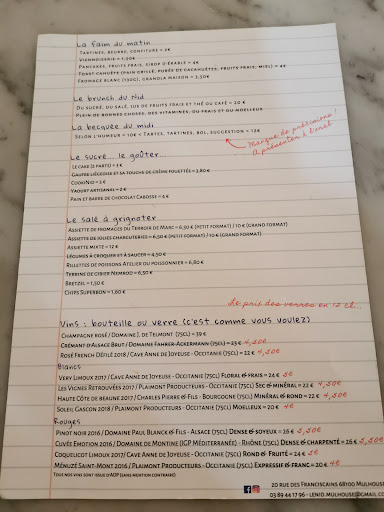 La faim du matin
Tartines, beurre, confiture = 2€
Viennoiserie = 1,50€
Pancakes, fruits frais, sirop d'érable = 4€
Toast cahuète (pain grillé, purée de cacahuètes, fruits frais, miel) = 4€
Fromage blanc (130g), granola maison = 3,50€
Le brunch du Nid
Du sucré, du salé, jus de fruits frais et thé ou café = 20 €
Plein de bonnes choses, des vitamines, du frais et du moelleux
La becquée du midi
Selon l'humeur = 10€ < Tartes, tartines, bol, suggestion < 12€
Manque de précisions !
à présenter à l'oral
Le sucré... le goûter...
Le cake (2 parts) = 1€
Gaufre liégeoise et sa touche de crème fouettée = 3,80€
CookiNid = 2€
Yaourt artisanal = 2€
Pain et barre de chocolat Cabosse = 4€
Le salé à grignoter
Assiette de fromages du Terroir de Marc = 6,50€ (petit format) / 10€ (grand format)
Assiette de jolies charcuteries = 6,50€ (petit format) / 10€ (grand format)
Assiette mixte = 12€
Légumes à croquer et à saucer = 4,50€
Rillettes de poissons Atelier du poissonnier = 6,80€
Terrine de gibier Nemrod = 6,50€
Bretzel = 1,50€
Chips Superbon = 1,60€
Le prix des verres en 12 cl...
Vins : bouteille ou verre (c'est comme vous voulez)
Champagne rosé / Domaine J. de Telmont (75cl) = 39€
Crémant d'Alsace Brut / Domaine Fahrer-Ackermann (75cl) = 23€ 4,50€
Rosé French Défilé 2018 / Cave Anne de Joyeuse - Occitanie (75cl) = 22€ 4,50€
Blancs
Very Limoux 2017 / Cave Anne de Joyeuse - Occitanie (75cl) Floral & frais = 24€ 5€
Les Vignes Retrouvées 2017 / Plaimont Producteurs - Occitanie (75cl) Sec & minéral = 22€ 4,50€
Haute Côte de Beaune 2017 / Charles Pierre & Fils - Bourgogne (75cl) Minéral & rond = 22€ 4,50€
Soleil Gascon 2018 / Plaimont Producteurs - Occitanie (75cl) Moelleux = 20€ 4€
Rouges
Pinot noir 2016 / Domaine Paul Blanck & Fils - Alsace (75cl) Dense & soyeux = 26€ 5,50€
Cuvée Emotion 2016 / Domaine de Montine (IGP Méditerranée) - Rhône (75cl) Dense & charpenté = 26€ 5,50€
Coquelicot Limoux 2017 / Cave Anne de Joyeuse - Occitanie (75cl) Rond & fruité = 24€ 5€
Ménuzé Saint-Mont 2016 / Plaimont Producteurs - Occitanie (75cl) Expressif & franc = 20€ 4€
Tous nos vins sont issus d'AOP (sans mention contraire)
20 rue des Franciscains 68100 Mulhouse
03 89 44 17 96 - lenid.mulhouse@gmail.co